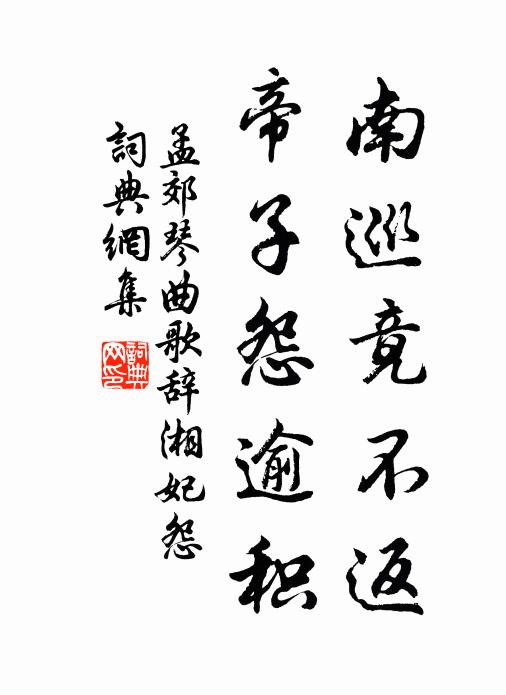 南巡竟不返
帝子怨逾积
孟郊琴曲歌辞湘妃怨
詞典網集
詞典网印